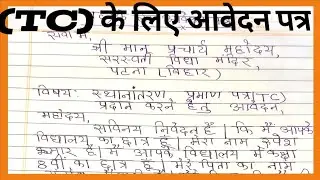 (TC) के लिए आवेदन पत्र
सेवा में,
श्री मान् प्रचार्य महोदय,
सरस्वती विद्या मंदिर,
पटना (बिहार)
विषय: स्थानांतरण प्रमाण पत्र (TC)
प्रदान करने हेतु आवेदन,
महोदय,
सविनय निवेदन है। कि मैं आपके
विद्यालय का छात्र हूँ। मेरा नाम रुपेश
कुमार है। मैं आपके विद्यालय में कक्षा
8वीं का छात्र हूँ। मेरे पिता का नाम